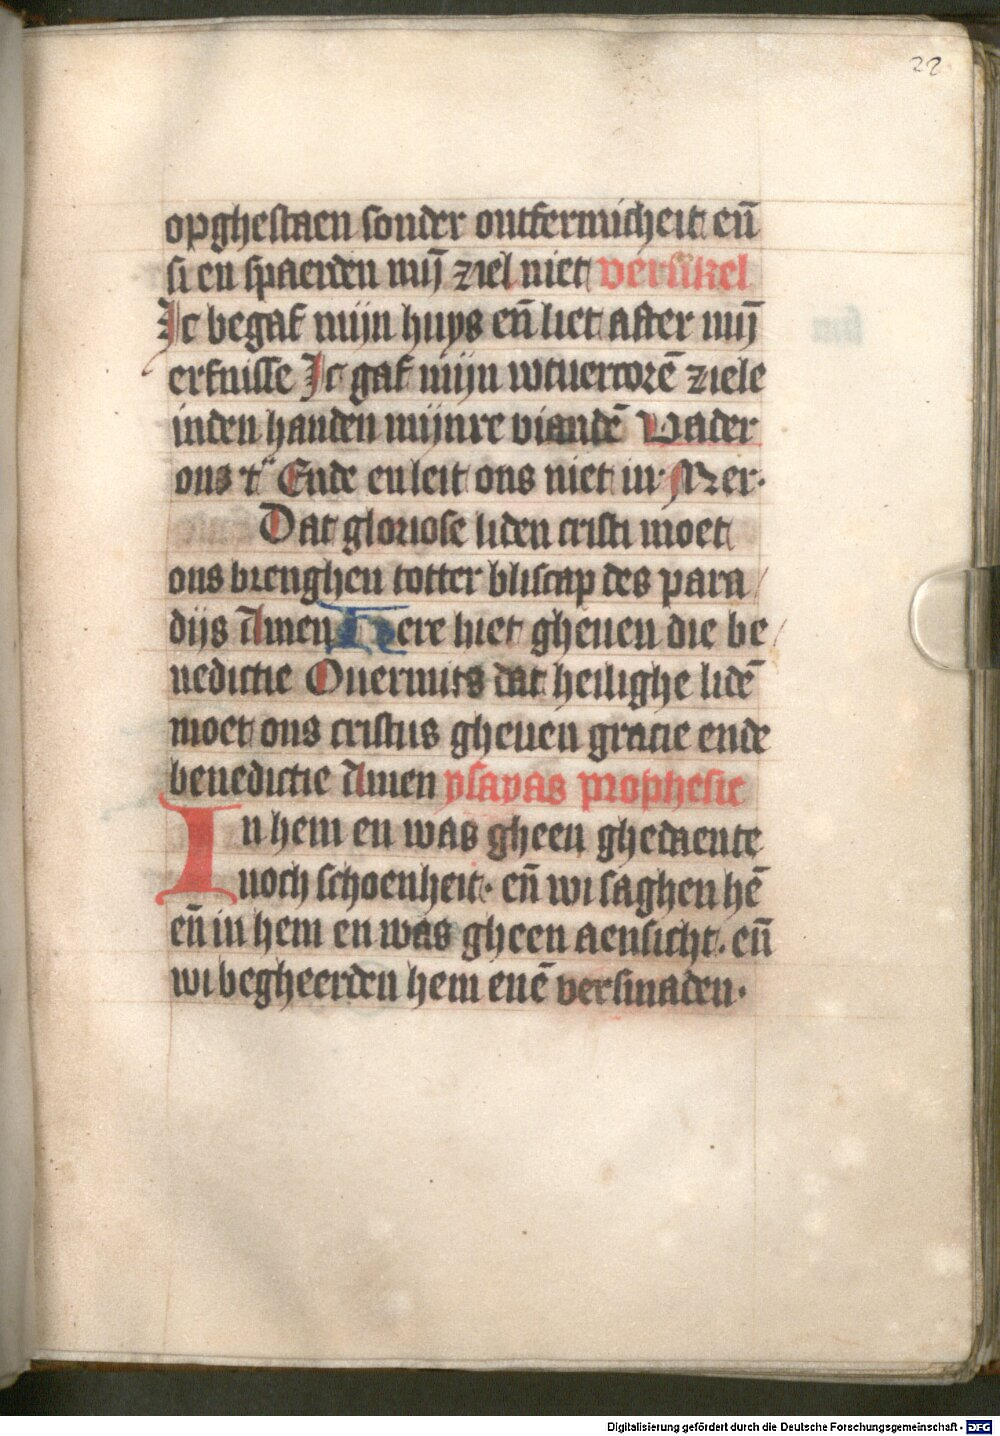 22
opghestaen sonder ontfermicheit en̄
si en spaerden mij̄ ziel niet versikel
Jc begaf mijn huys en̄ liet after mij̄
erfnisse Jc gaf mijn wtuercorē ziele
inden handen mijnre viandē Vader
ons Ende en leit ons niet in· Mer·
Dat gloriose liden cristi moet
ons brenghen totter bliscap des para/
dijs Amen Here hiet gheuen die be/
nedictie Ouermits dat heilighe lidē
moet ons cristus gheuen gracie ende
benedictie Amen ysayas prophesie
In hem en was gheen ghedaente
noch schoenheit· en̄ wi saghen hē
en̄ in hem en was gheen aensicht· en̄
wi begheerden hem enē versmaden·
Digitalisierung gefördert durch die Deutsche Forschungsgemeinschaft - DFG